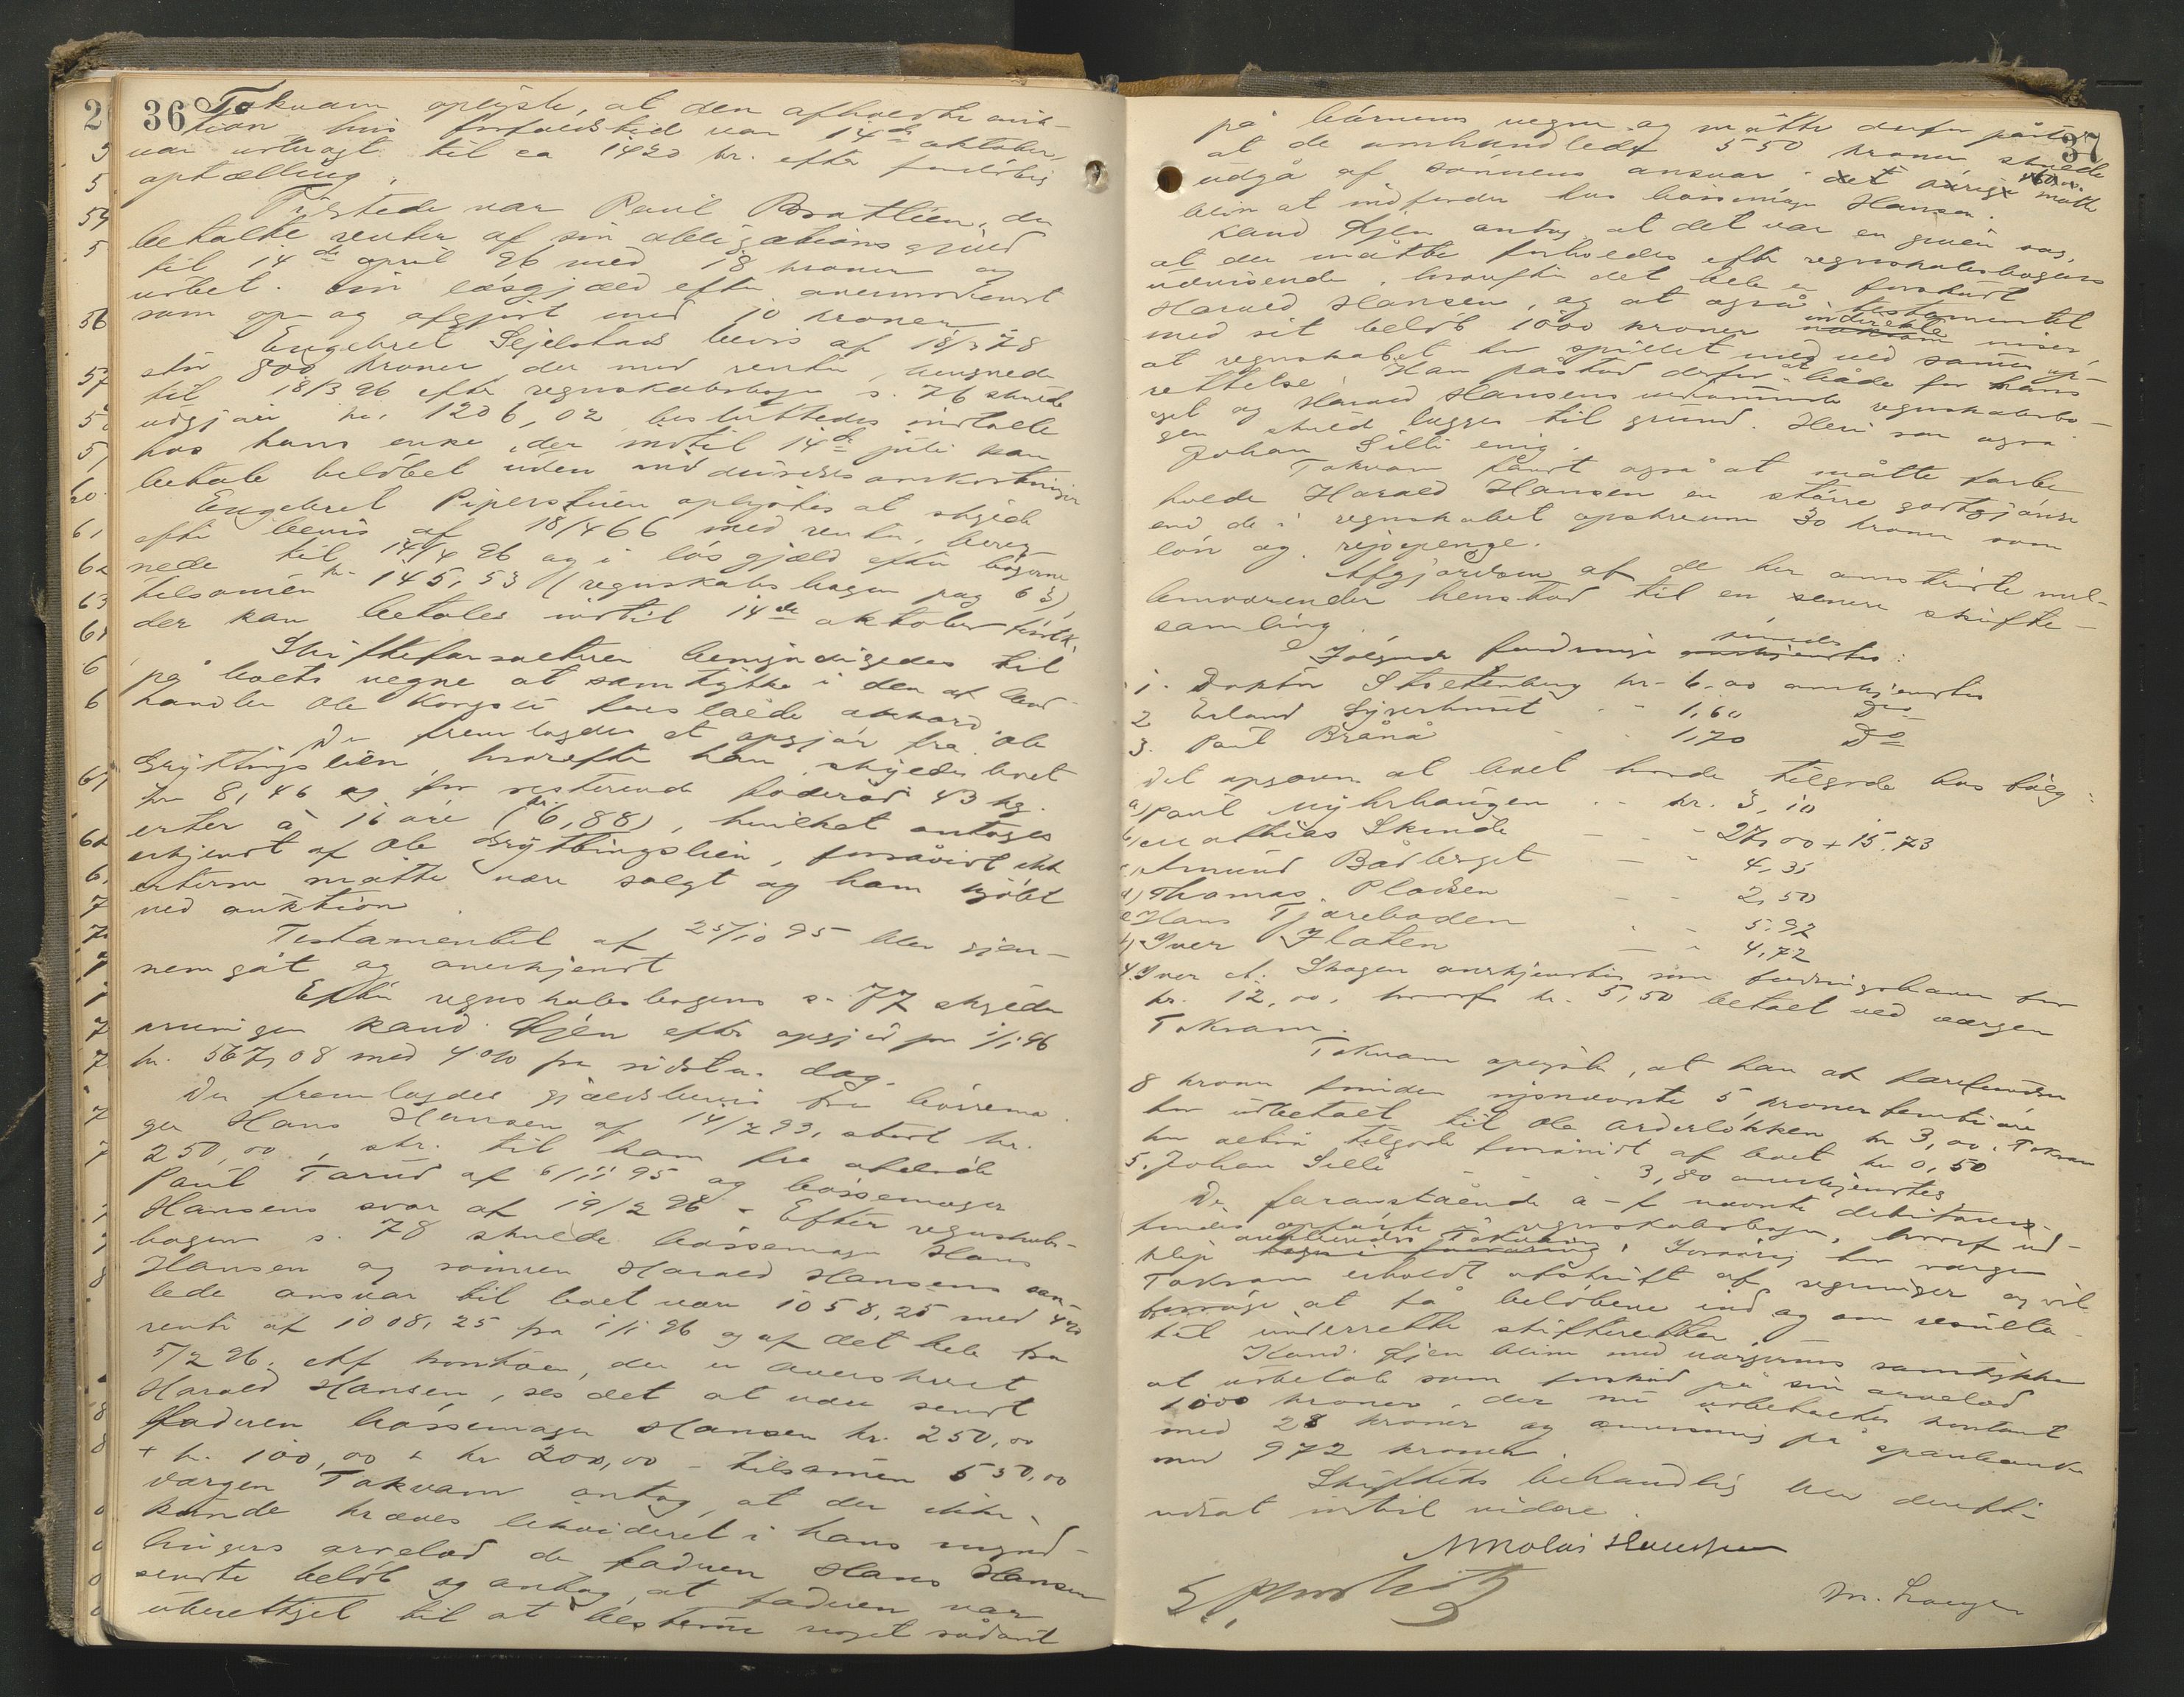 36 Tokvam oplyste, at den afholdte auk-
tion hvis forfaldstid var 14de oktober,
var udbragt til ca 1420 kr. efter foreløbig
optælling.
Tilstede var Paul Bratlien, der
betalte renter af sin obligationsgjæld
til 14de april 96 med 18 kroner og
udbet. sin løsgjæld efter anerkjendt
som op- og afgjort med 10 kroner
Engebret Skjelstads bevis af 18/3 78
stor 800 kroner der med renter, beregnede
til 18/3 96 efter regnskabsbogen s. 76 skulde
udgjøre kr. 1206,02 besluttedes indtalt
hos hans enke, der indtil 14de juli kan
betale beløbet uden inddrivelsesomkostninger
Engebret Piperstuen oplystes at skylde
efter bevis af 18/4 66 med renter, bereg-
nede til 14/4 96 og i løsgjæld efter bøgerne
tilsamen kr. 145,53 (regnskabsbogen pag 63),
der kan betales indtil 14de oktober førstk.
Skifteforvalteren bemyndigedes til
på boets vegne at samtykke i den af land-
handler Ole Kongsli foreslåede akkord.
Der fremlagdes et opgjør fra Ole
Gryttingslien, hvorefter han skylder boet
kr 8,46 og for resterende foderåd 43 kg.
erter à 16 øre (kr. 6,88), hvilket antages
erkjendt af Ole Gryttingslien, forsåvidt ikke
erterne måtte være solgt og ham kjøbt
ved auktion.
Testamentet af 25/10 95 blev gjen-
nemgåt og anerkjendt
Efter regnskabsbogens s. 77 skylder
arvingen kand. Kjen efter opgjør pr 1/1 96
kr. 567,08 med 4 % fra sidstn. dag.
Der fremlagdes gjældsbevis fra børsema-
ger Hans Hansen af 14/7 93, stort kr.
250,00, skr. til ham fra afdøde
Paul Tarud af 6/11 95 og bøssemager
Hansens svar af 19/2 96. Efter regnskabs-
bogens s. 78 skulde bøssemager Hans
Hansen og sønnen Harald Hansens sam-
lede ansvar til boet være 1058,25 med 4 %
rente af 1008,25 fra 1/1 96 og af det hele fra
5/2 96. Af kontoen, der er overskrevet
Harald Hansen, ses det at være sendt
faderen bøssemager Hansen kr. 250,00
+ kr. 100,00 + kr 200,00 – tilsamen 550,00
værgen Tokvam antog, at der ikke
kunde kræves likvideret i hans mynd-
lingers arvelod de faderen Hans Hansen
sendte beløb og antog, at faderen var
uberettiget til at bestemme noget sådant
37
på børnenes vegne og måtte derfor påstå
at de omhandlede 550 kroner skulde
udgå af sønnens ansvar. det måtte
blive at indfordre hos bøssemager Hansen.
Kand Kjen antog, at det var en given sag,
at der måtte forholdes efter regnskabsbogens
udvisende, hvorefter det hele er forskud
Harald Hansen, og at også testamentet
med sit beløb 1000 kroner indirekte viser,
at regnskabet har spillet med ved sammes op-
rettelse. Han påstod derfor at både for hans
eget og Harald Hansens vedkommende regnskabsbo-
gen skulde lægges til grund. Heri var også
Johan Silli enig.
Tokvam fandt også at måtte forbe-
holde Harald Hansen en større godtgjørelse
end de i regnskabet opskrevne 30 kroner som
løn og rejsepenge.
Afgjørelsen af de her omstridte mel-
lemværender henstod til en senere skifte-
samling.
Følgende fordringer :
1. Doktor Stoltenberg kr. 6,00 anerkjendtes
2 Erland Lyverhuset - - 1,60 Do
3. Paul Brånå - - 1,70 Do
Det opgaves at boet havde tilgode hos følg:
a) Paul Nyhrhaugen - - kr. 3,10
b) Mathias Skinde - - - 27,00 + 15,73
c) Amund Bådberget - - 4,35
d) Thomas Pladsen - - 2,50
e) Hans Tjæreboden - - 5,92
f) Iver Flaten - - 4,72
4. Iver A. Skogen anerkjendtes som fordringshaver for
kr. 12,00, hvoraf kr. 5,50 betalt ved værgen
Tokvam.
Tokvam oplyste, at han af
8 kroner foruden 5 kroner femti øre
har udbetalt til Ole Arderløkken kr 3,00. Tokvam
har altså tilgode forsåvidt af boet kr 0,50
5. Johan Silli - 3,80 anerkjendtes
De foranstående a-f nævnte debitorer
findes opførte i regnskabsbogen, hvoraf ud-
klip anbetroedes Tokvam. Forøvrig har værgen
Tokvam erholdt afskrift af regninger og vil
forsøge at få beløbene ind og om resulta-
tet underrette skifteretten.
Kand. Kjen blive med værgernes samtykke
at udbetale som forskud på sin arvelod
1000 kroner, der nu udbetaltes kontant
med 28 kroner og anvisning på sparebanken
med 972 kroner.
Skiftets behandling blev derefter
udsat indtil videre.
M. Hauger